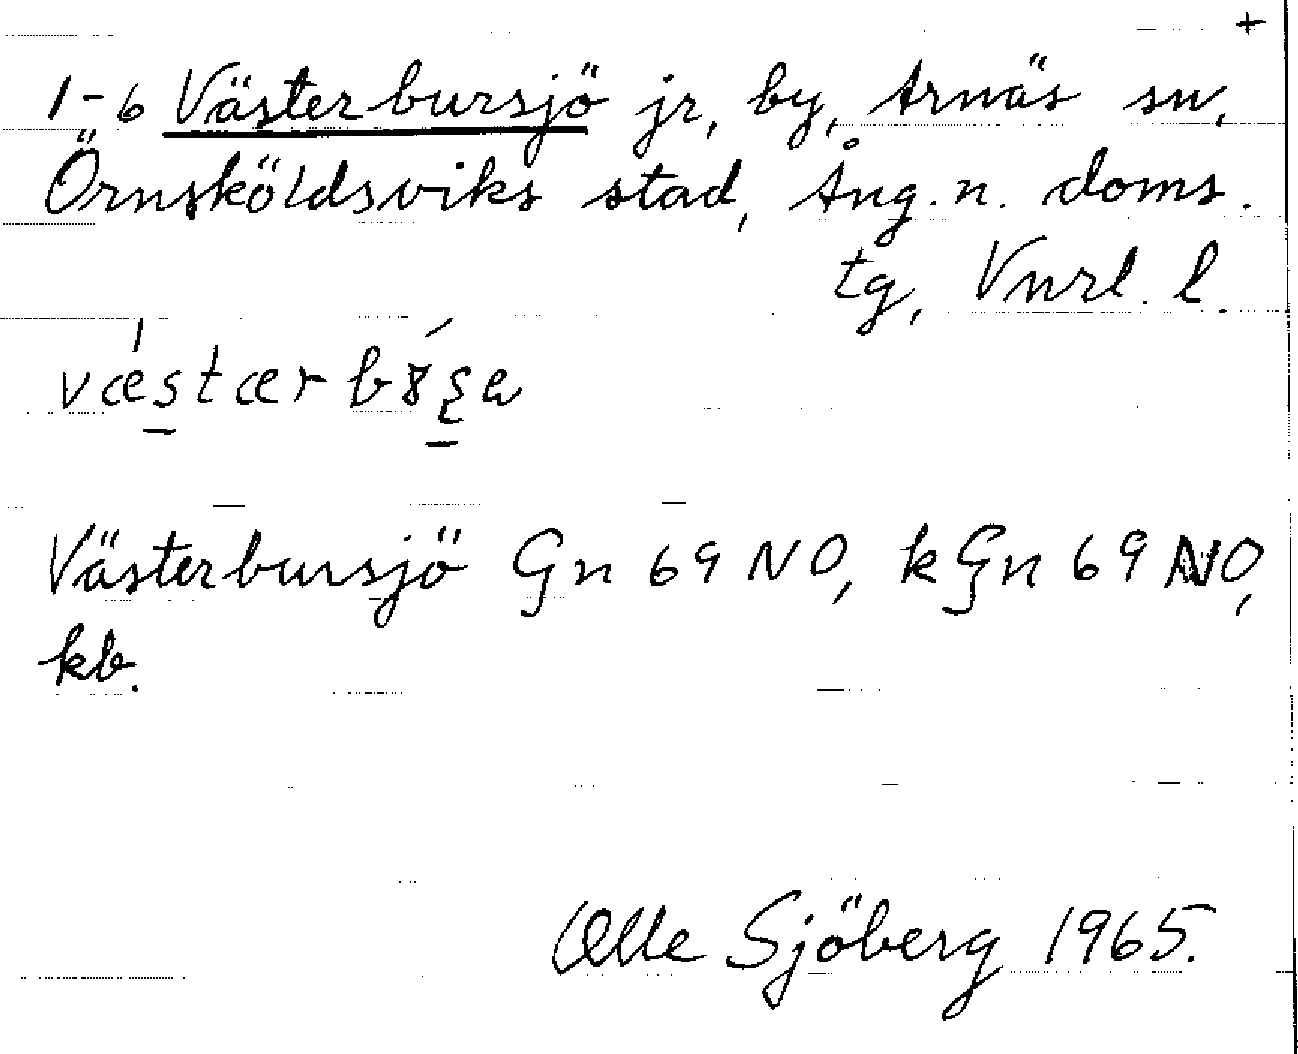 +
1-6 Västerbursjö jr, by, Arnäs sn,
Örnsköldsviks stad, Ång. n. doms.
tg, Vnrl. l.
Västerbursjö Gn 69 NO, kGn 69 NO,
kb.
Olle Sjöberg 1965.